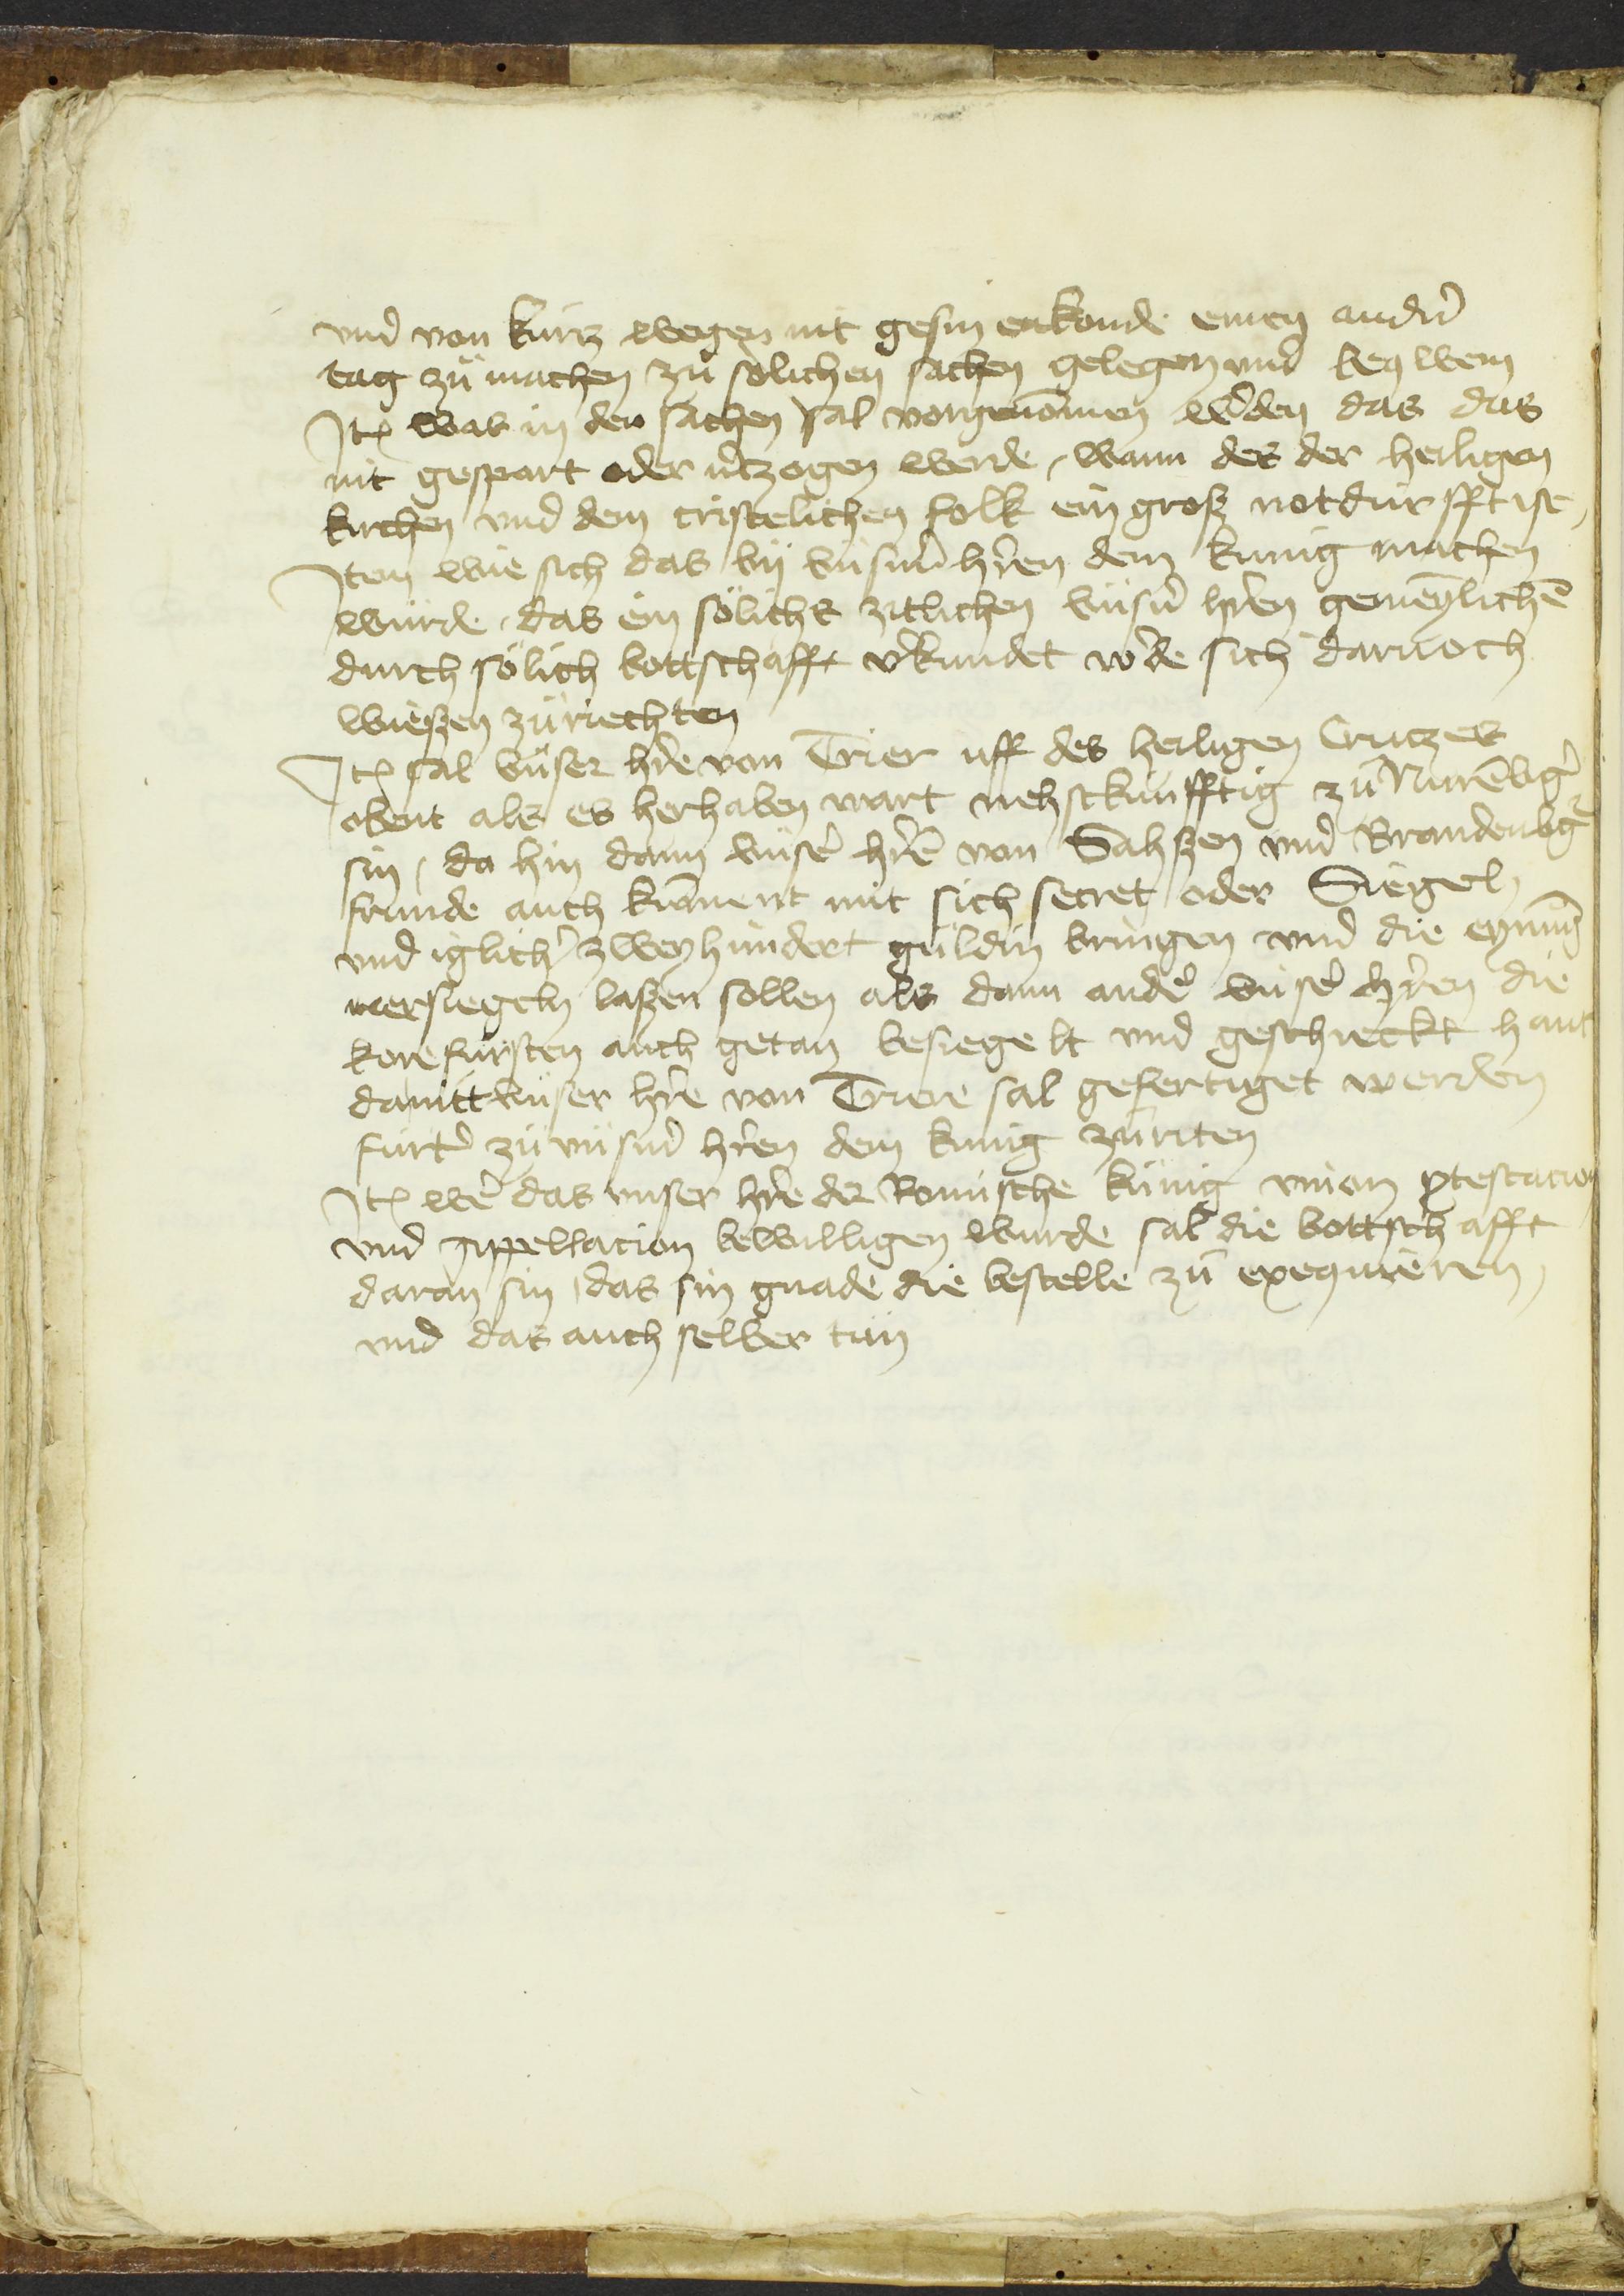 vnd von kurtz wegen nit gesin enkonde einen andern̄
tag zü machen zü sölichen sachen gelegen vnd beqwem
Itē was in den sachen sal vorgenōmen wˀden das das
nit gespart oder vˀtzogen werde, wann des der heiligen
kirchen vnd dem cristelichen folk ein groß notdürfft ist,
Item wie sich das bÿ vnsmˀ hˀren dem kunig machen
würde, das ein sölichs zitlichen vnsnˀ hˀren gemeÿlichē
durch sölich bottschafft vˀkundet wˀde sich darnoch
wießen zü riechten
Itē sal vnser hˀre von Trier uff des heiligen Crutzes
obent als es herhaben wart nehstkünfftig zü Nurēbgˀ
sin, da hin dann vnseˀ hˀrē von Sahßen vnd Brandenbgˀ
frunde auch kōment mit sich secret oder Siegel
vnd iglichˀ zweyhundert güldin bringen vnd die eynūg
versiegeln laßen sollen als dann andeˀ vnseˀ hˀren die
korefürsten auch getan besiegelt vnd geschieckt hant
damitt vnser hˀre von Triere sal gefertiget werden
fürtˀ zü vnsmˀ hˀren dem kunig zü riten
Itē weˀ das vnser hˀre der Romische künig vnion ꝓtestacion
vnd Appellacion bewilligen wurde sal die bottschafft
daran sin, das sin gnade die bestelle zü exequieren,
vnd das auch selber tün